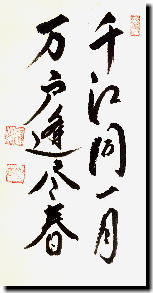 千江同一月
万户逢尽春